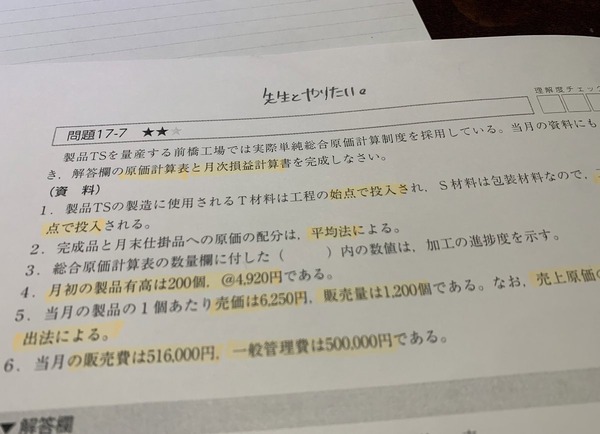 先生とやりたい。
理解度チェッ
問題17-7 ★★★
製品TSを量産する前橋工場では実際単純総合原価計算制度を採用している。当月の資料にも
き，解答欄の原価計算表と月次損益計算書を完成しなさい。
（資　料）
1．製品TSの製造に使用されるT材料は工程の始点で投入され，S材料は包装材料なので，
点で投入される。
2．完成品と月末仕掛品への原価の配分は，平均法による。
3．総合原価計算表の数量欄に付した（　　　）内の数値は，加工の進捗度を示す。
4．月初の製品有高は200個，@4,920円である。
5．当月の製品の1個あたり売価は6,250円，販売量は1,200個である。なお，売上原価の
出法による。
6．当月の販売費は516,000円，一般管理費は500,000円である。
▼解答欄